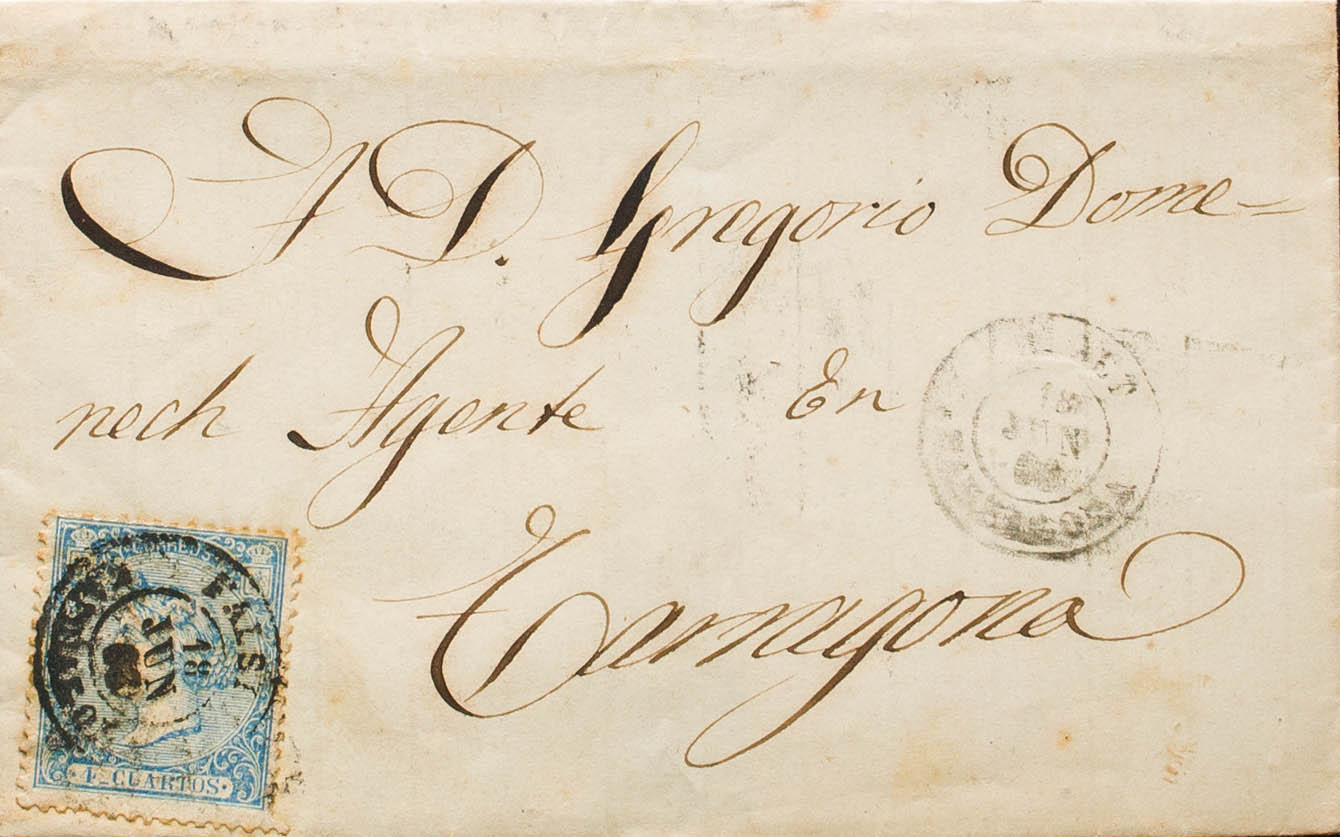 A D. Gregorio Dome-
nech Agente En
Tarragona
18
JUN
TARRAGONA
FALSET
18
JUN
CORREOS
4 CUARTOS.